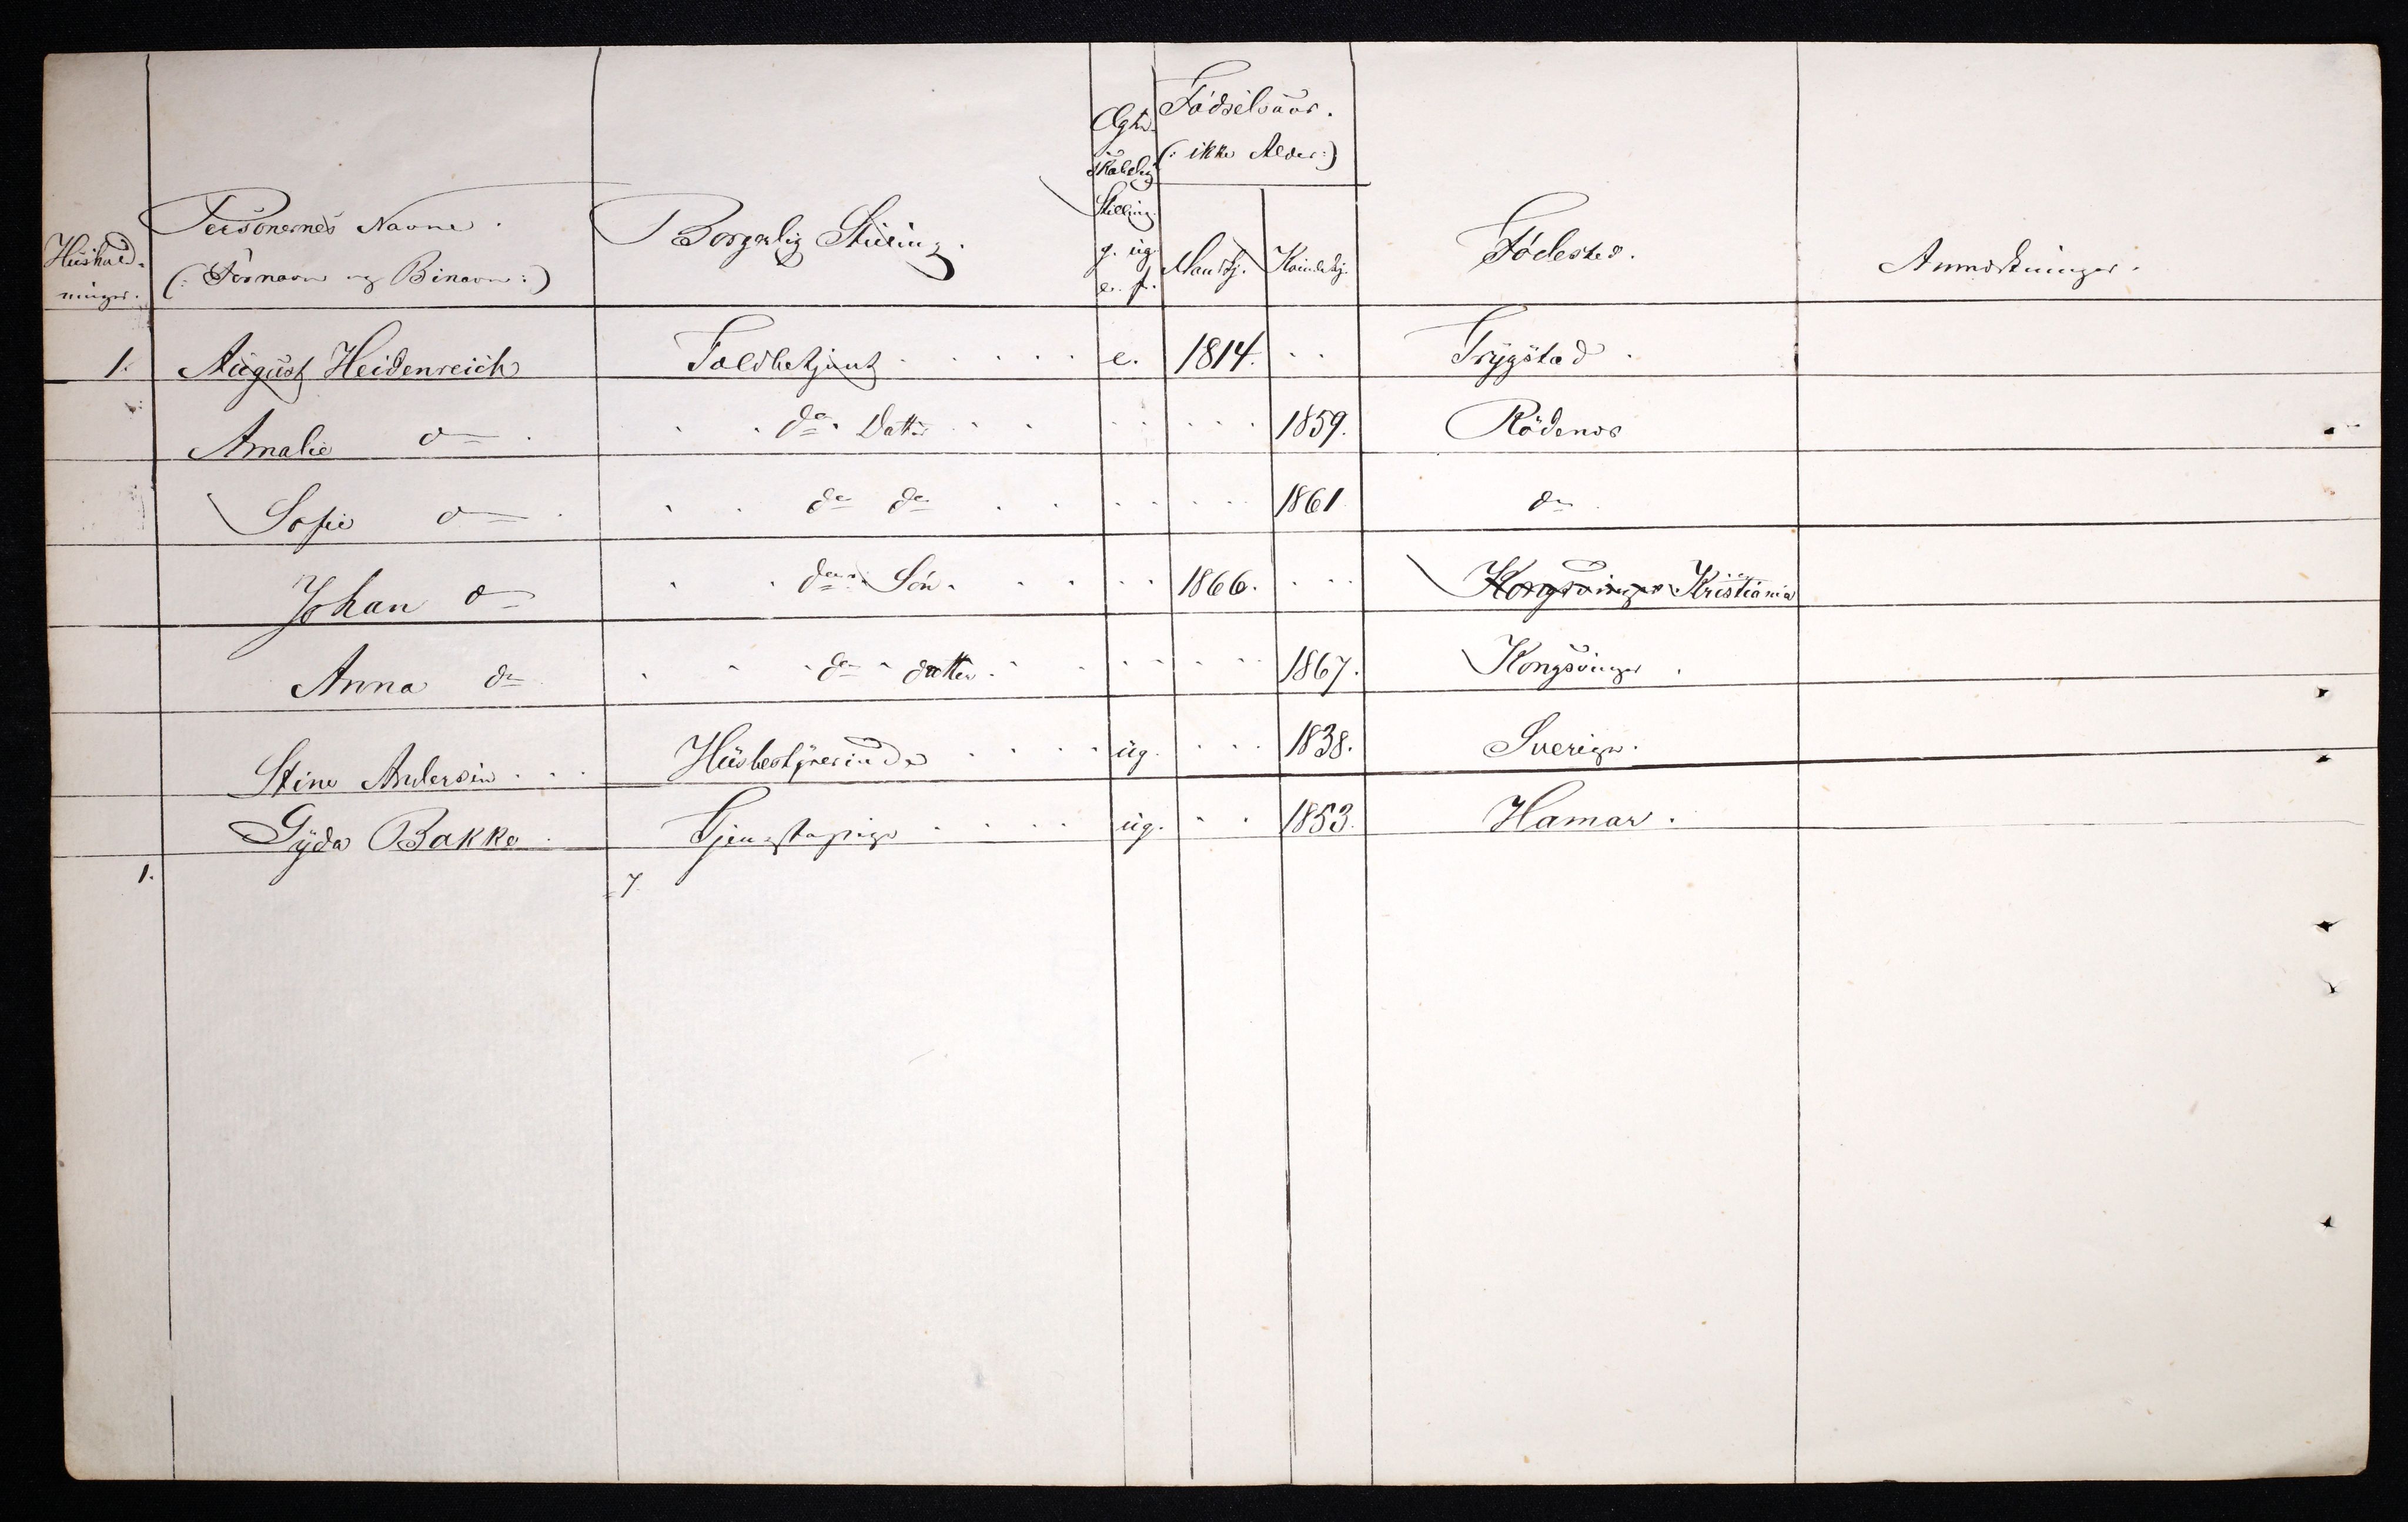 Fødselsaar.
Ægte-
(: ikke Alder:)
skabelig
Stilling.
Personernes Navne.
Borgerlig Stilling.
g. ug.
Mandkj. Kvindekj.
Fødested.
Hushold-
Anmærkninger.
ninger.
(: Fornavn og Binavn:)
e. f.
1. August Heidenreich Toldbetjent . . . . . e. 1814. . . Trygstad.
Amalie do . . . do. Datter . . . . . . . . 1859. Rødenes
Sofie do . . . do do . . . . . . . 1861 do.
Johan do . . do. Søn. . . . . . 1866. . . . Kongsvinger Kristiania
Anna do . . . do . datter. . . . . . . . 1867. Kongsvinger.
Stine Andersen . . . Husbestyrerinde . . . . ug. . . . 1838. Sverige.
Gyda Bakke . Tjenestepige . . . . ug. . . 1853. Hamar.
1. 7